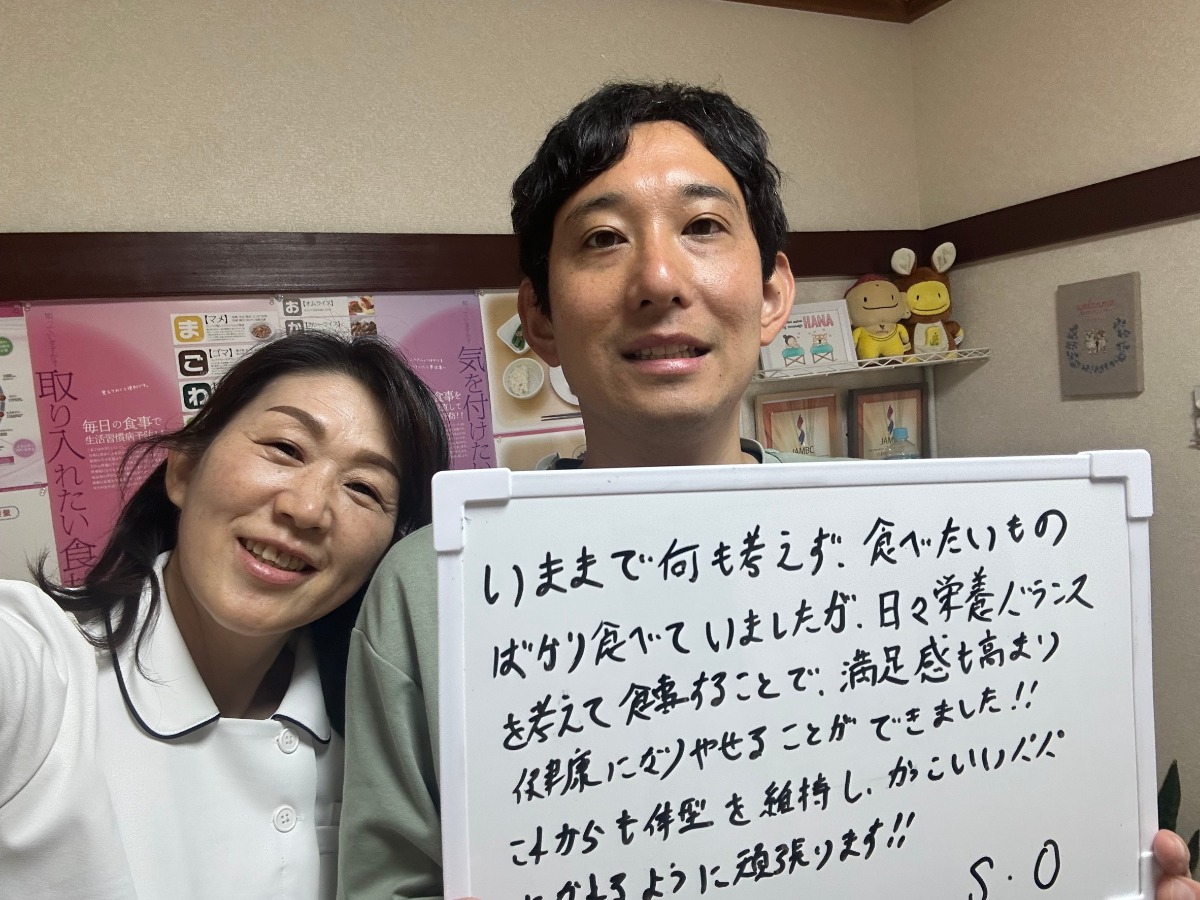 いままで何も考えず、食べたいもの
ばかり食べていましたが、日々栄養バランス
を考えて食事することで、満足感も高まり
健康になりやせることができました!!
これからも体型を維持し、かっこいいパパ
になれるように頑張ります!!
S.O
取り入れたい食
毎日の食事で
生活習慣病予防
ま
【マメ】
ご
【ゴマ】
わ
お
【オムライス】
か
気を付けたい
HANA
JAMBC
JAM